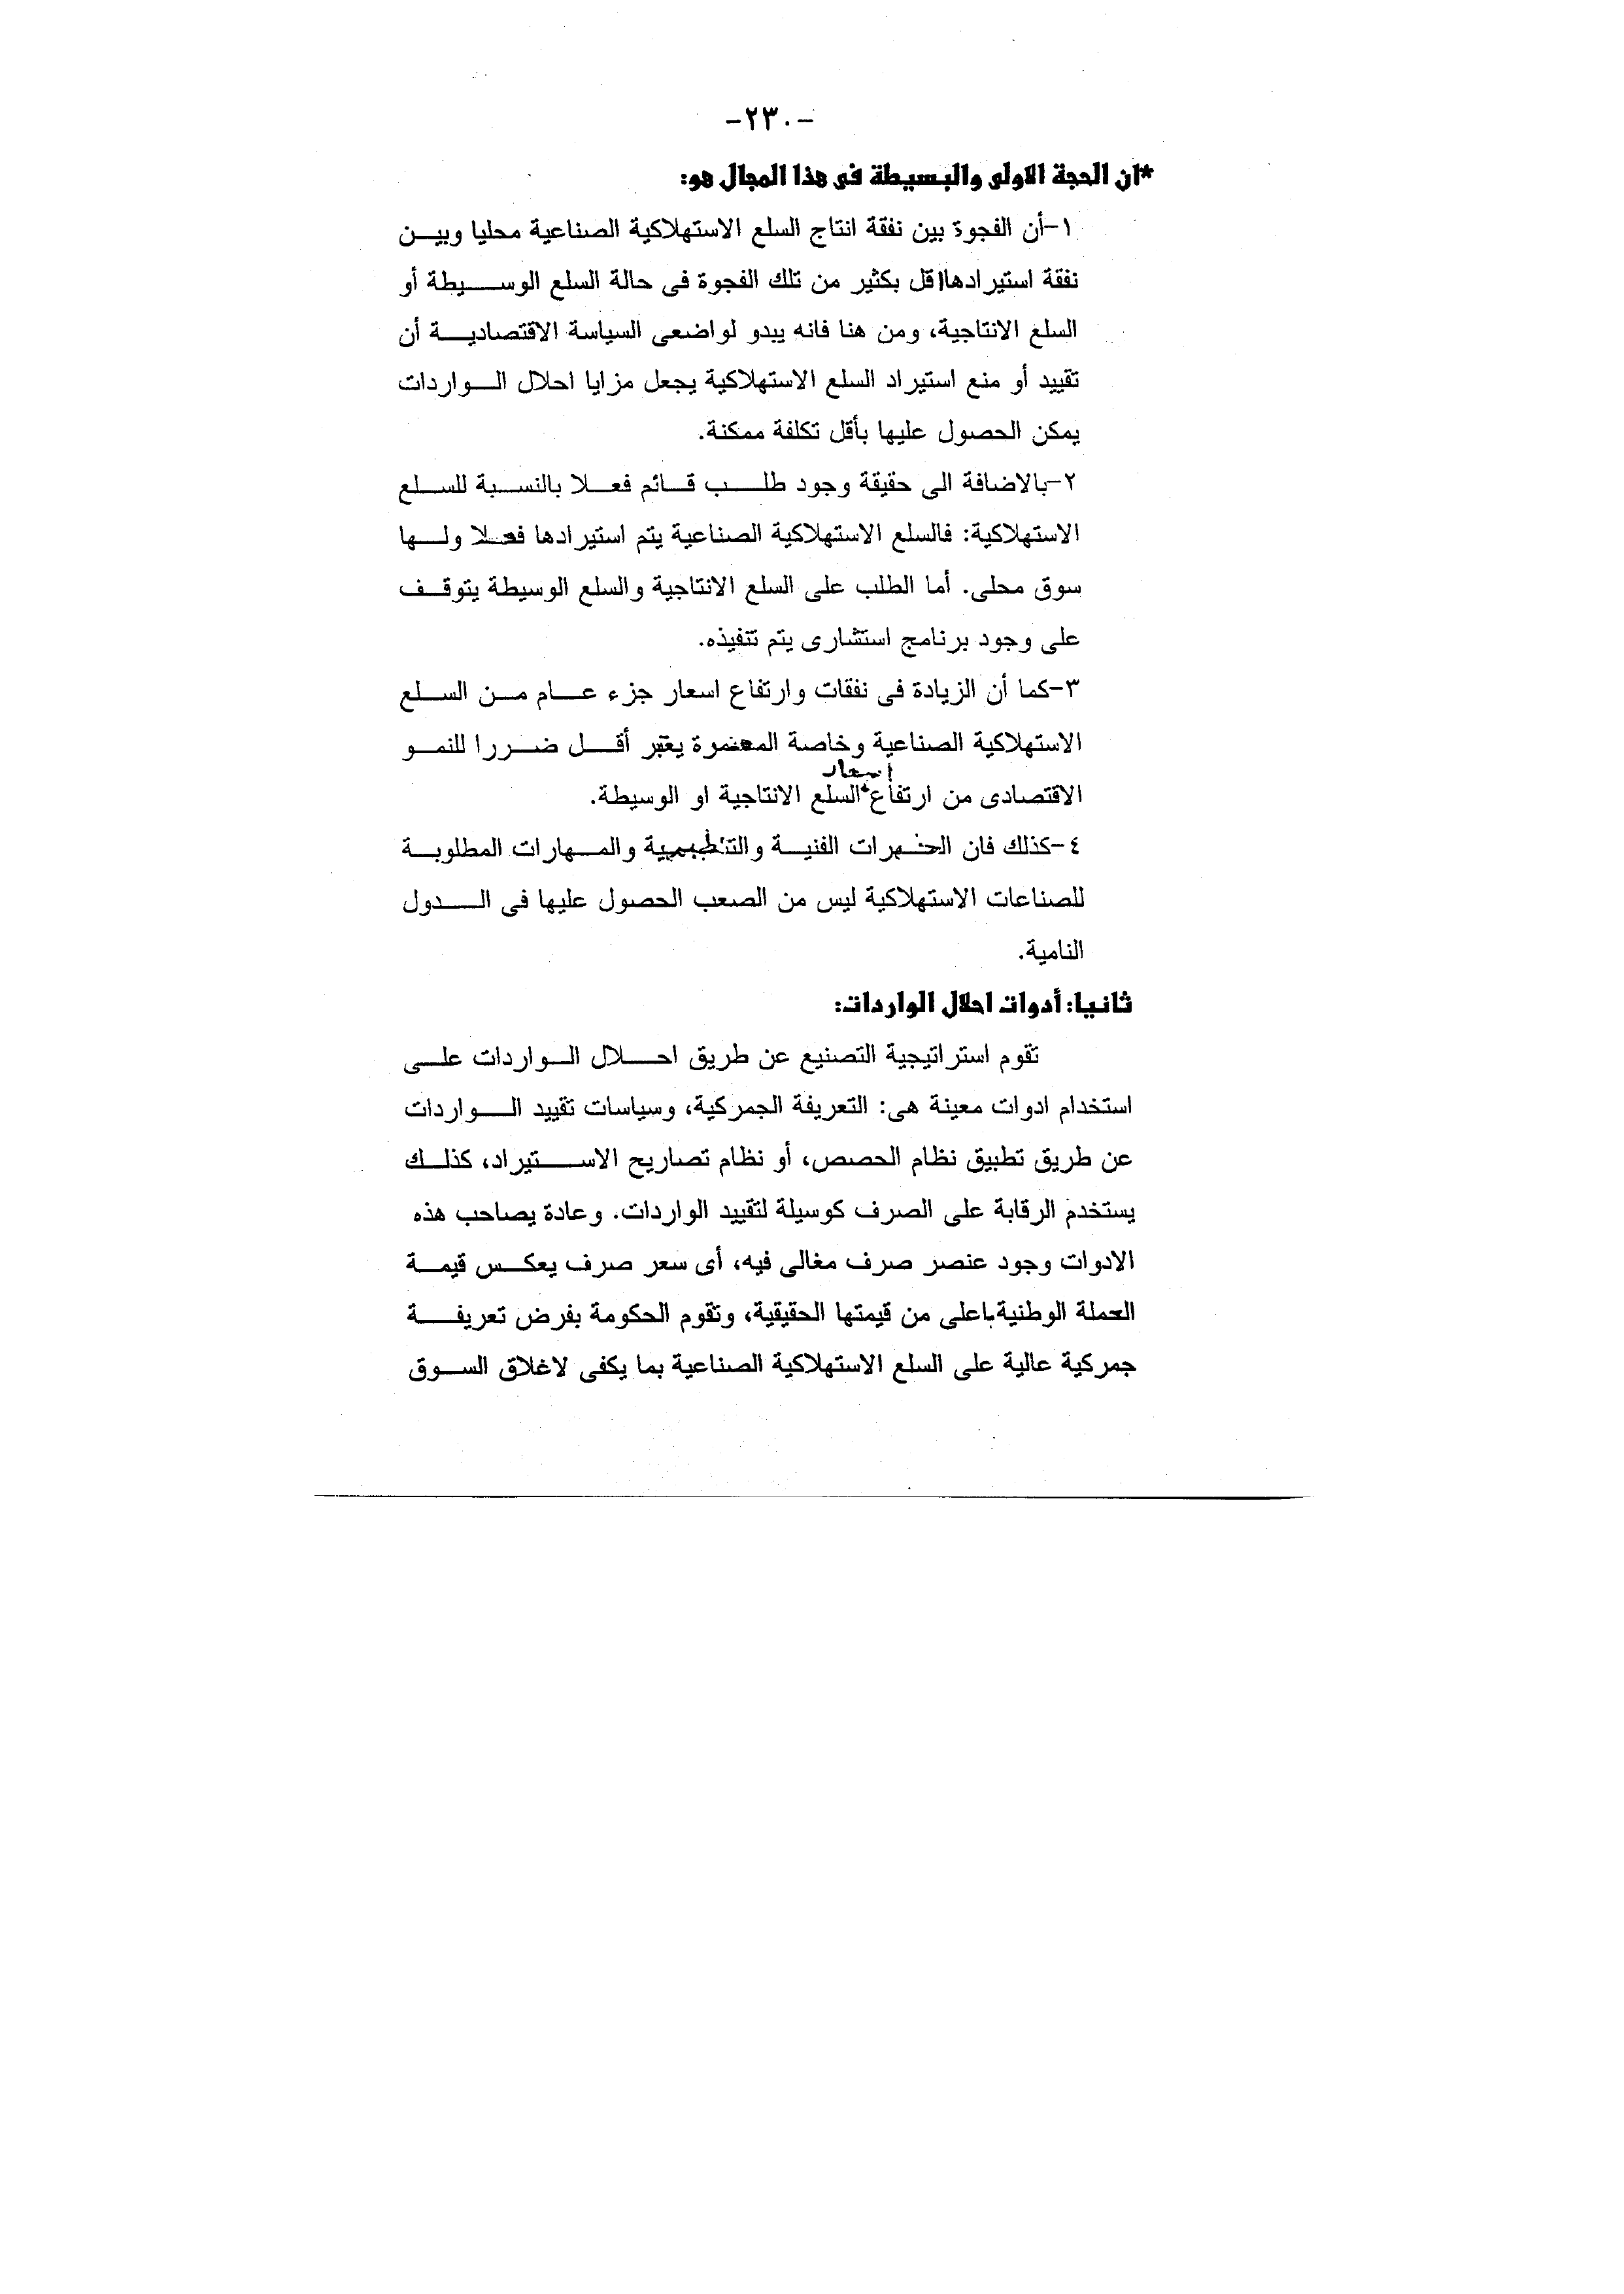 -٢٣٠-
*ان الحجة الاولى والبسيطة فى هذا المجال هو:
١-أن الفجوة بين نفقة انتاج السلع الاستهلاكية الصناعية محليا وبين
نفقة استيرادها اقل بكثير من تلك الفجوة فى حالة السلع الوسيطة أو
السلع الانتاجية، ومن هنا فانه يبدو لواضعى السياسة الاقتصادية أن
تقييد أو منع استيراد السلع الاستهلاكية يجعل مزايا احلال الواردات
يمكن الحصول عليها بأقل تكلفة ممكنة.
٢-بالاضافة الى حقيقة وجود طلب قائم فعلا بالنسبة للسلع
الاستهلاكية: فالسلع الاستهلاكية الصناعية يتم استيرادها فعلا ولها
سوق محلى. أما الطلب على السلع الانتاجية والسلع الوسيطة يتوقف
على وجود برنامج استشارى يتم تنفيذه.
٣-كما أن الزيادة فى نفقات وارتفاع اسعار جزء عام من السلع
الاستهلاكية الصناعية وخاصة المعمرة يعتبر أقل ضررا للنمو
الاقتصادى من ارتفاع اسعار السلع الانتاجية او الوسيطة.
٤-كذلك فان الخبرات الفنية والتنظيمية والمهارات المطلوبة
للصناعات الاستهلاكية ليس من الصعب الحصول عليها فى الدول
النامية.
ثانيا: أدوات احلال الواردات:
تقوم استراتيجية التصنيع عن طريق احلال الواردات على
استخدام ادوات معينة هى: التعريفة الجمركية، وسياسات تقييد الواردات
عن طريق تطبيق نظام الحصص، أو نظام تصاريح الاستيراد، كذلك
يستخدم الرقابة على الصرف كوسيلة لتقييد الواردات. وعادة يصاحب هذه
الادوات وجود عنصر صرف مغالى فيه، أى سعر صرف يعكس قيمة
العملة الوطنية باعلى من قيمتها الحقيقية، وتقوم الحكومة بفرض تعريفة
جمركية عالية على السلع الاستهلاكية الصناعية بما يكفى لاغلاق السوق